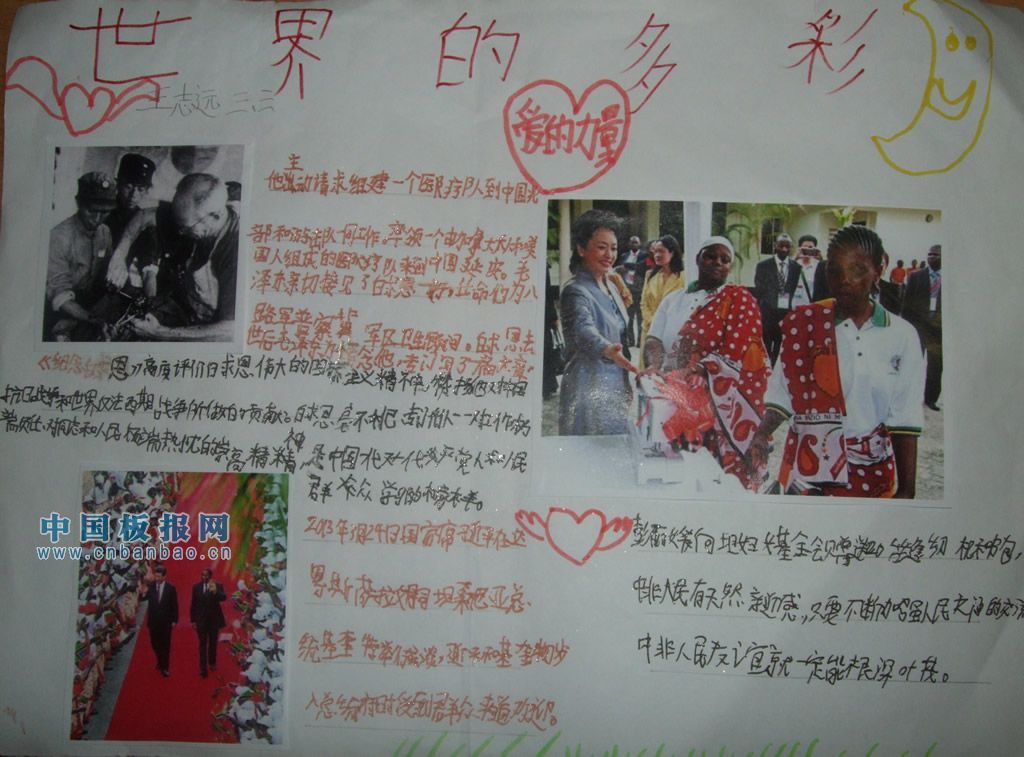 世界的多彩
王志远 三、三
爱的力量
主
他动请求组建一个医疗队到中国北
部和游击队一同工作,率领一个由加拿大人和美
国人组成的医疗队来到中国延安。毛
泽东亲切接见了白求恩一行,任命他为八
路军晋察冀
军区卫生顾问。白求恩去
世后毛
念他,专门写了篇文章
《纪念白求
恩》高度评价白求恩伟大的国际主义精神,
抗日战争和世界反法西斯战争所做的贡献。白求恩毫不利己专门利人
对同志和人民极端热忱的崇高精神
是中国一代又一代共产党人和人民
群众学习的
2013年3月24日国家主席习近平在达
累斯萨拉姆同坦桑尼亚总
统基奎特举行会谈,
入总统府时受到群众夹道欢迎。
彭丽媛向坦妇女基金会赠送 缝纫机和书包,
中非人民有天然亲近感,只要不断加强人民交
中非人民友谊就一定能根深叶茂。
中国板报网
www.cnbanbao.cn